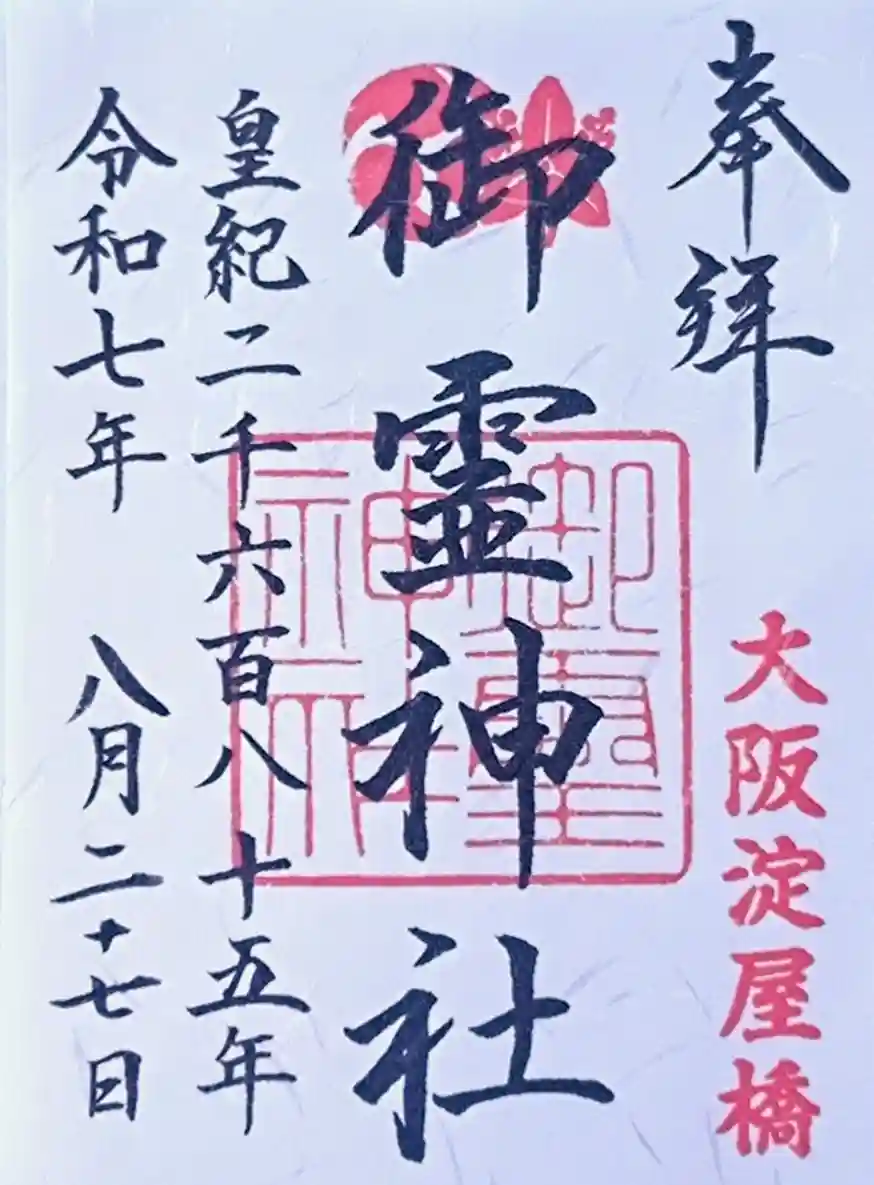 奉拜
大阪淀屋橋
御霊神社
御霊神社
皇紀二千六百八十五年
令和七年 八月二十七日